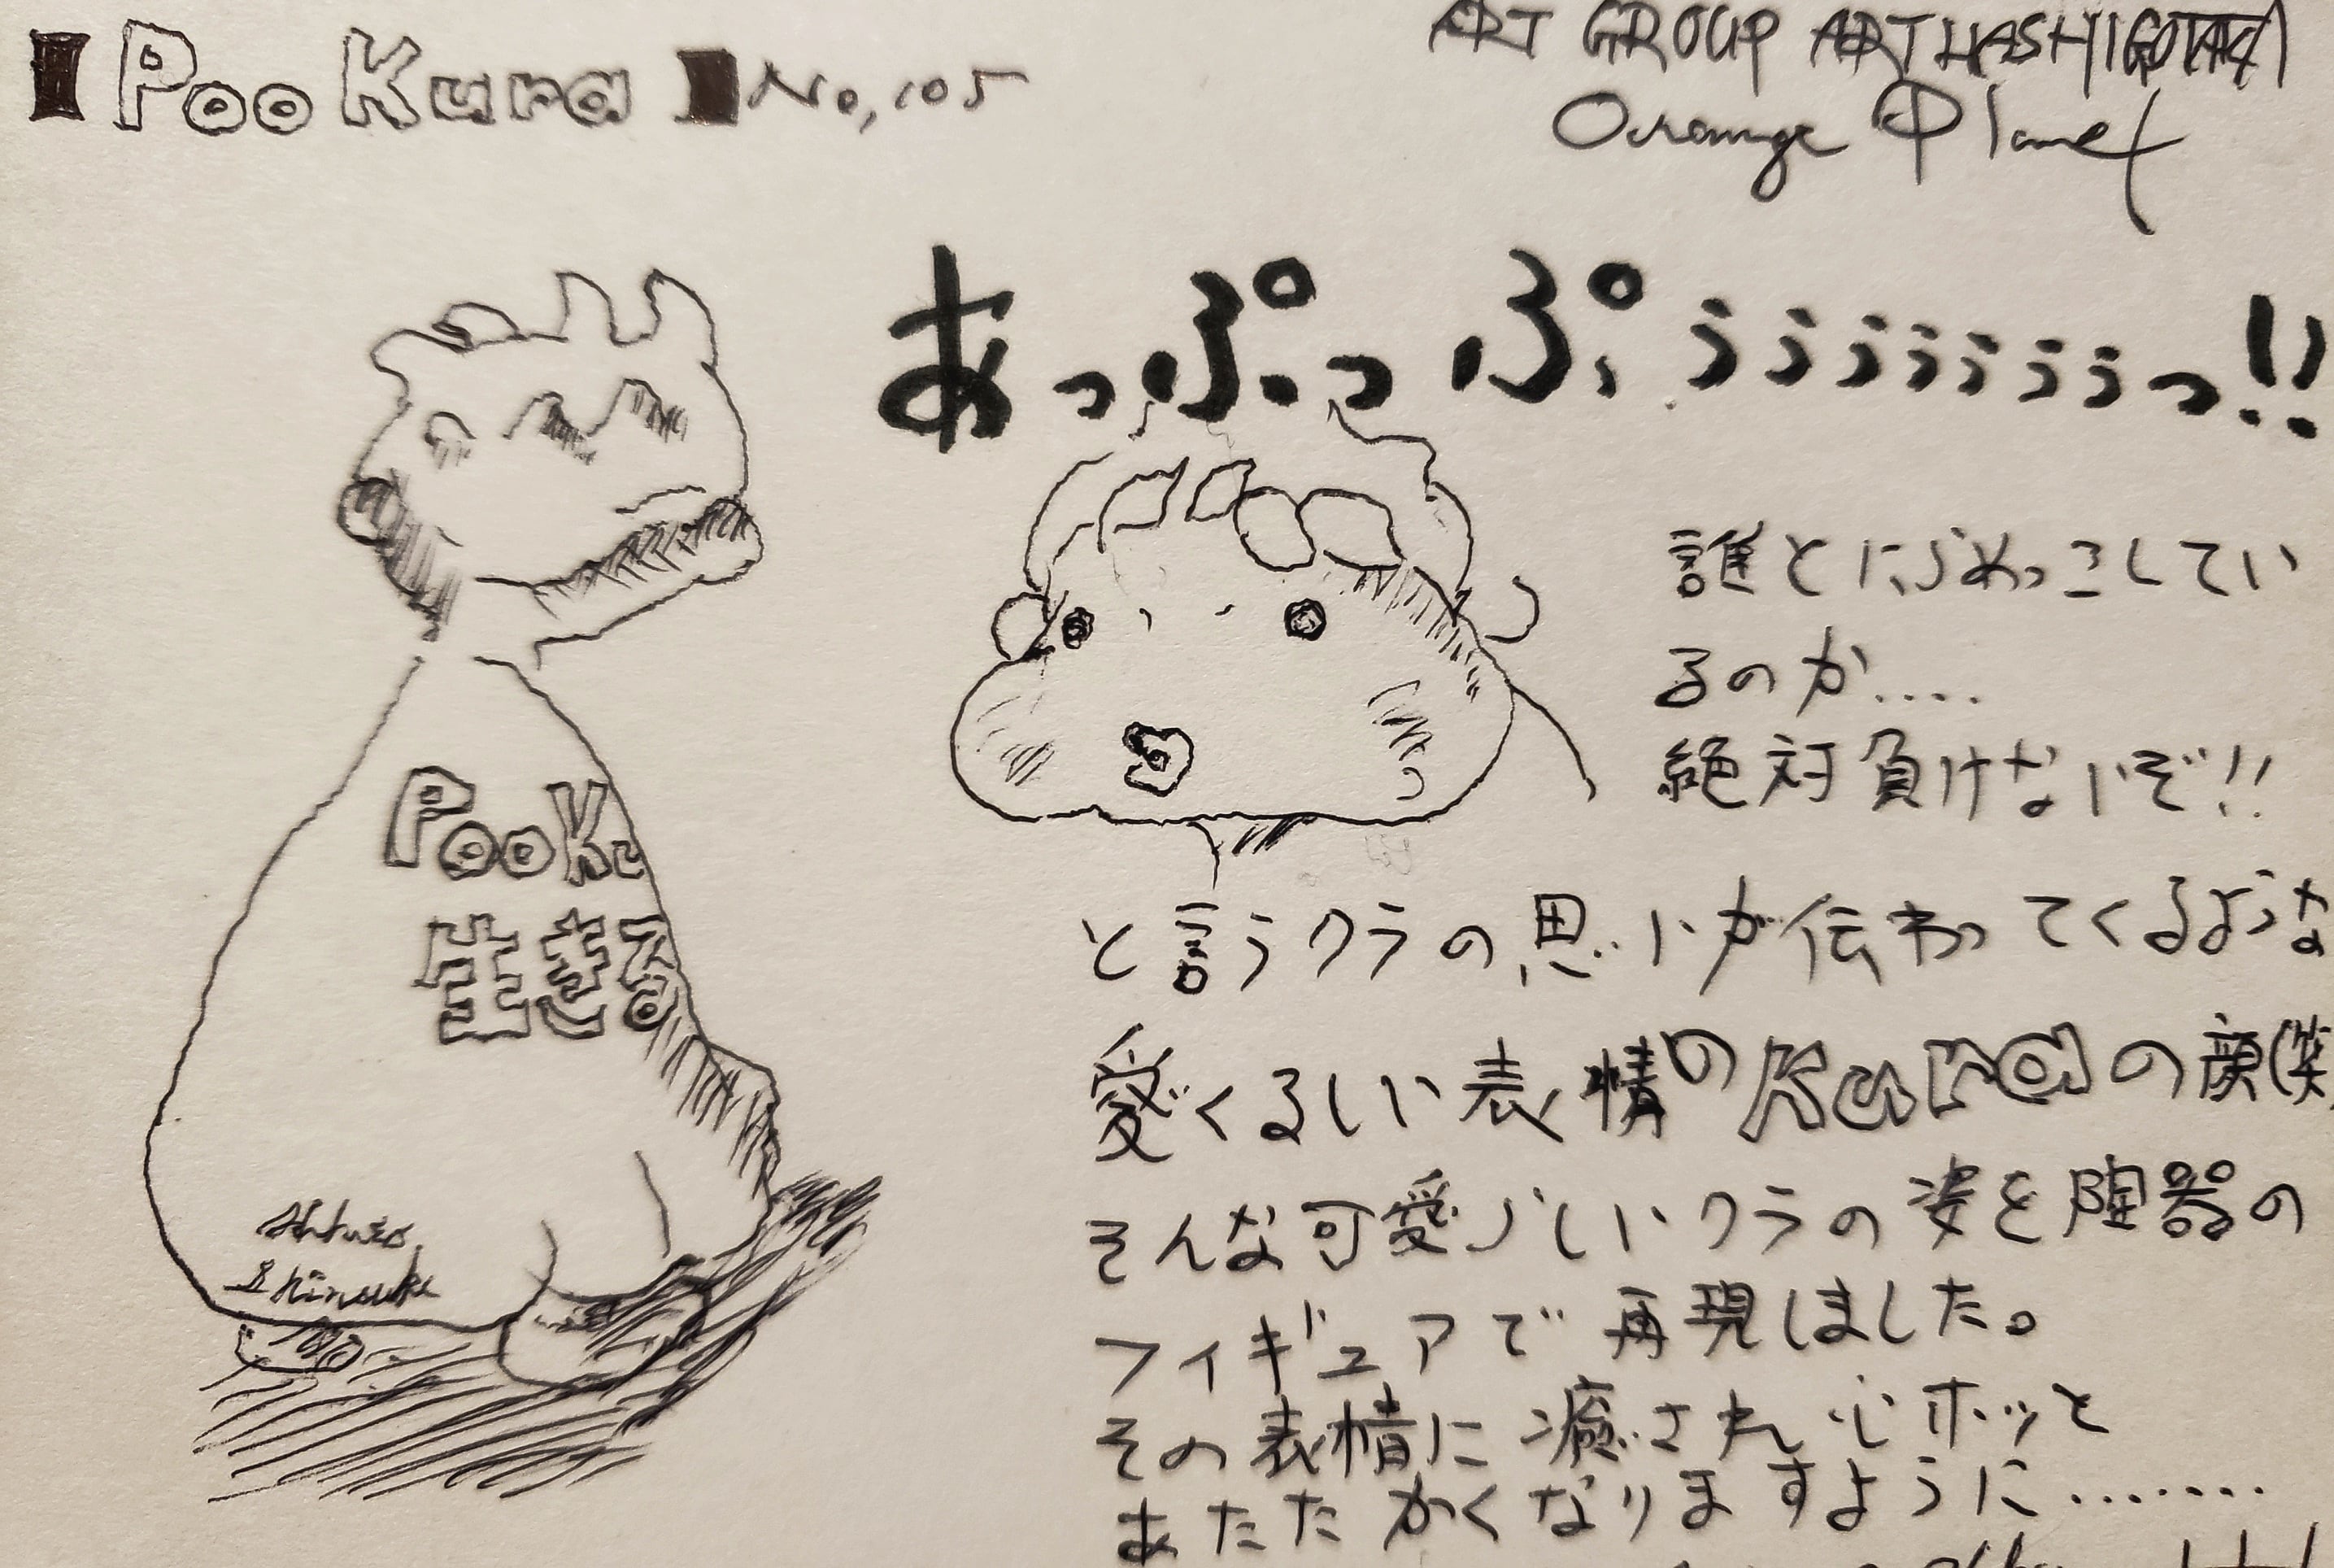 Poo Kura No,105
ART GROUP ART HASHIGOTAKA
Orange Planet
あっぷっぷぅぅぅぅぅぅぅっ!!
誰とにらめっこしてい
るのか....
絶対負けないぞ!!
と言うクラの思いが伝わってくるような
愛くるしい表情のKuraの顔(笑
そんな可愛らしいクラの姿を陶器の
フィギュアで再現しました。
その表情に癒され心ホッと
あたたかくなりますように........
PooKu
生きる
Shinsuke